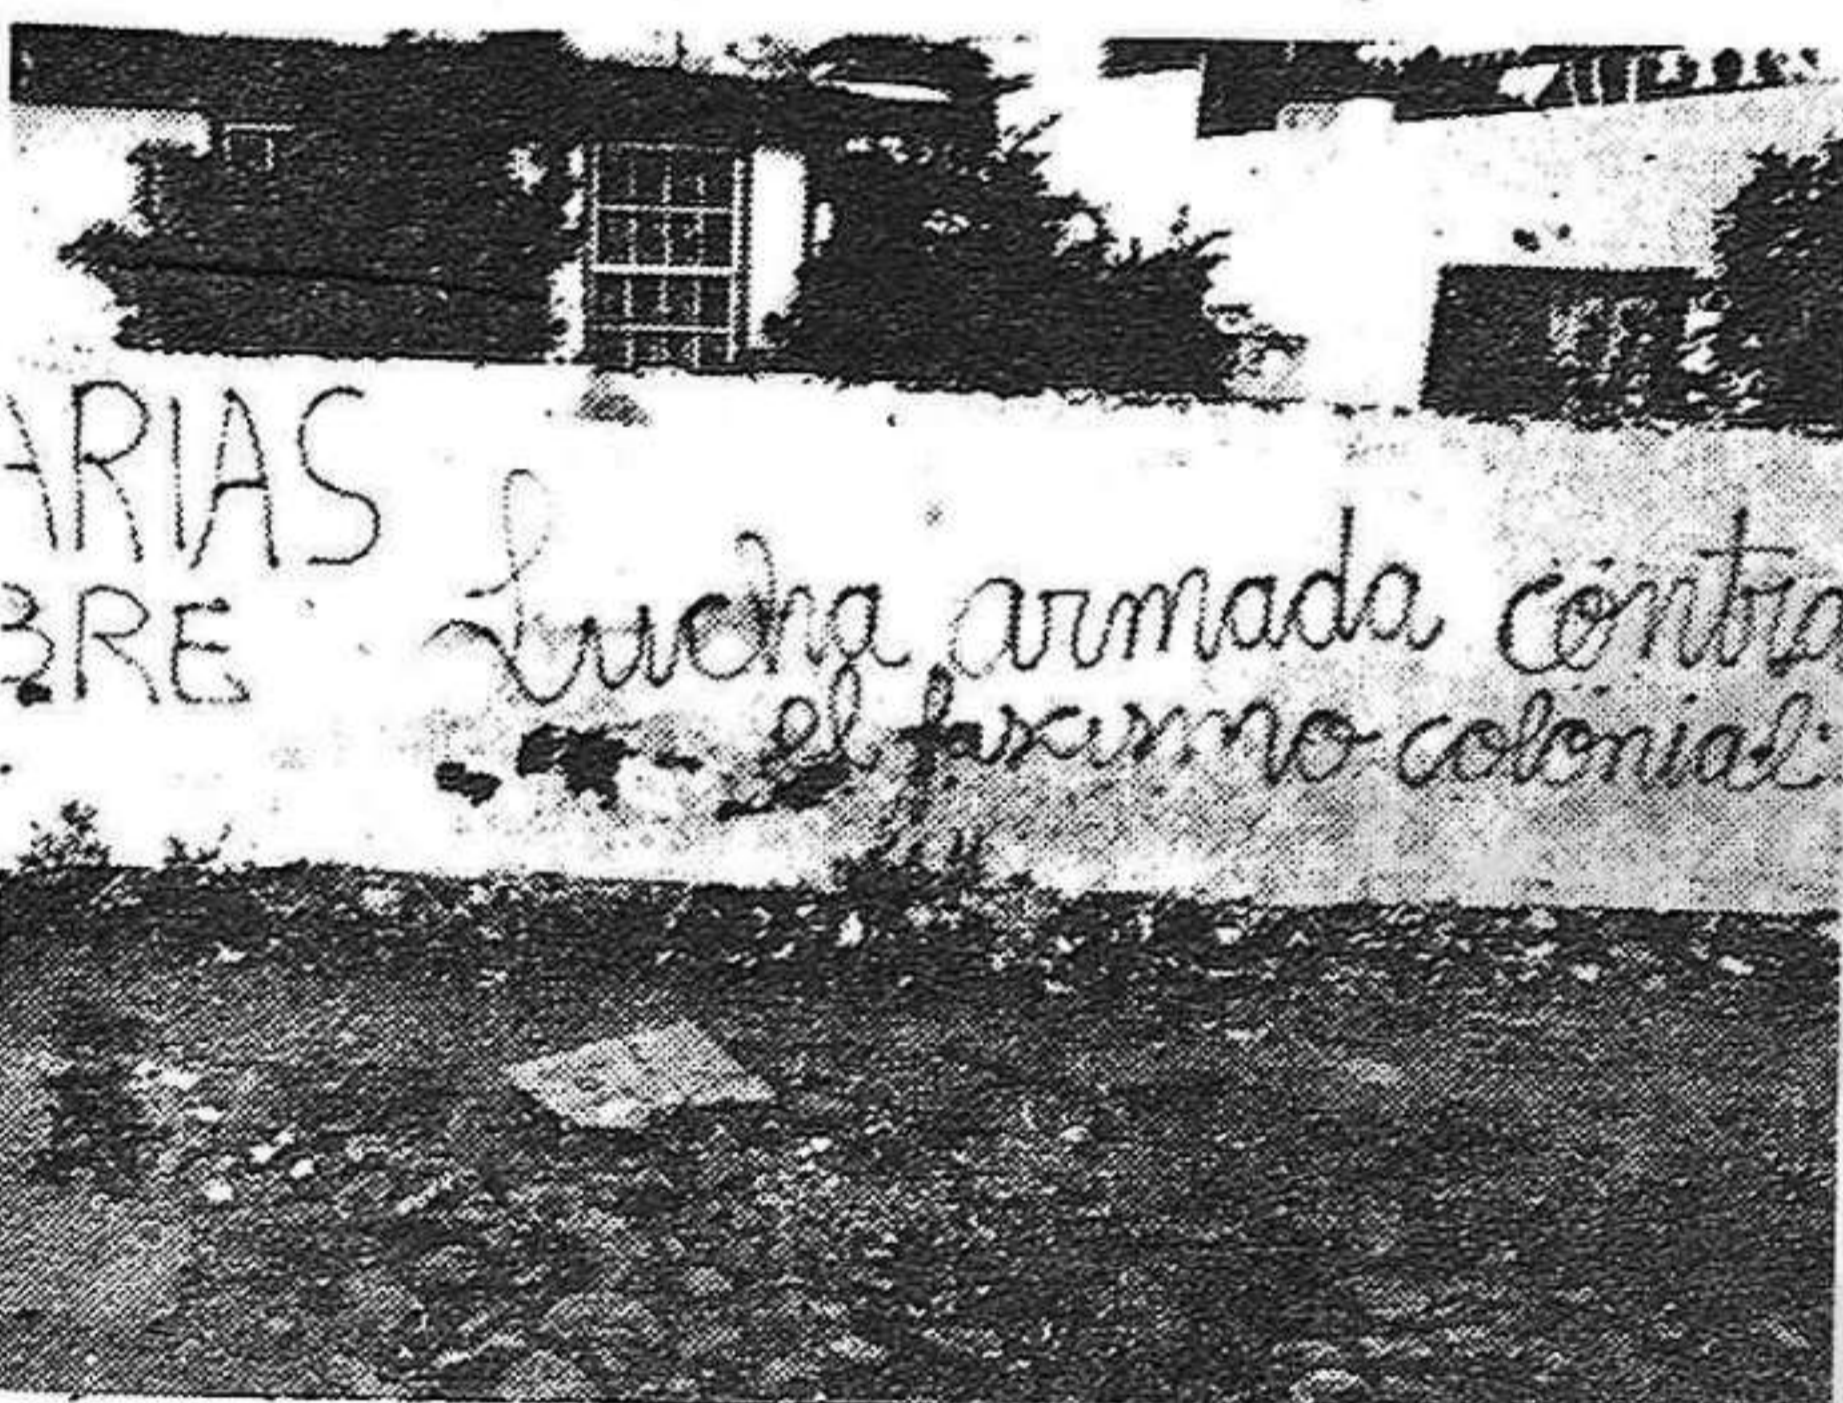 ARIAS
BRE
Lucha armada contra
el fascismo colonial